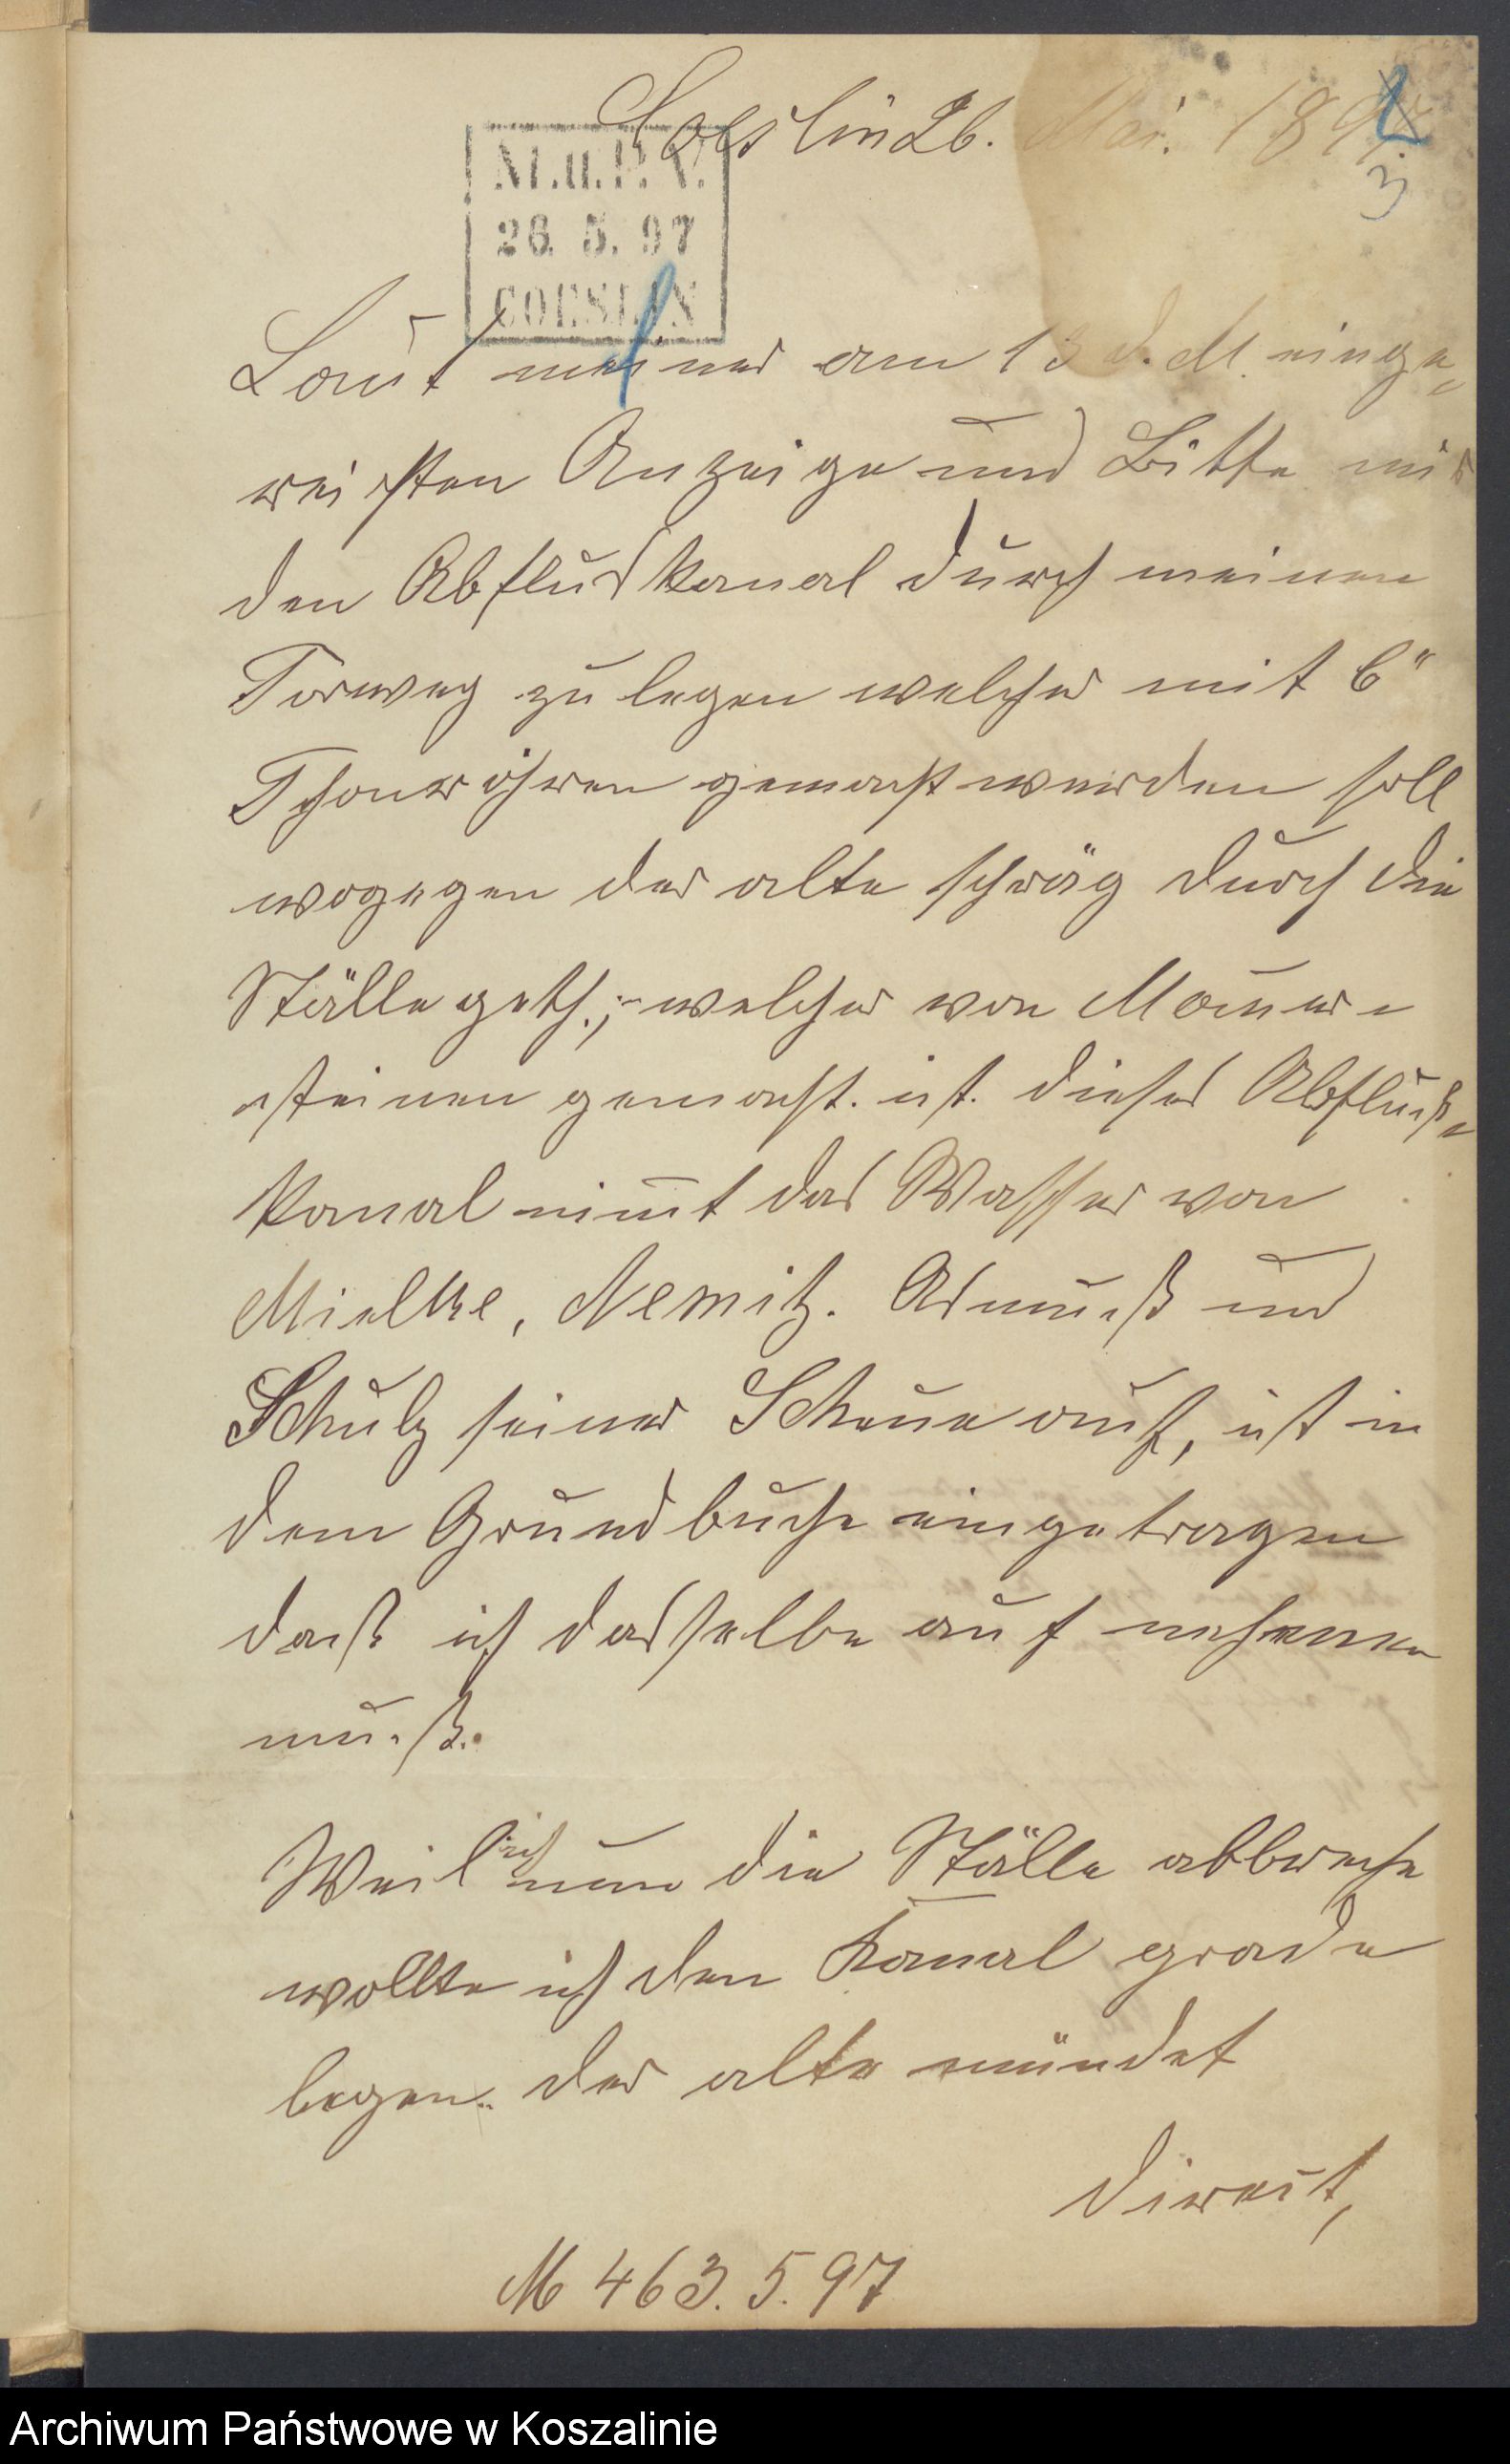 Coeslin 26. Mai. 1897.
3
M.u.P.V.
26. 5. 97
COESLIN
Laut meiner am 13 d. M. einge„
reichten Anzeige und Bitte mir
den Abfluskanal durch meinen
Torweg zu legen welcher mit 6"
Thonröhren gemacht werden soll
wogegen der alte schräg durch die
Ställe geth.; welcher von Mauer„
steinen gemacht. ist. dieser Abfluß„
kanal nimt das Wasser von
Mielke, Nemitz. Asmuß und
Schulz seiner Scheune auf, ist in
dem Grundbuche eingetragen
daß ich dasselbe auf nehmen
muß.
Weil ich nun die Ställe abbreche
wollte ich den Kanal grade
legen. der alte mündet
direckt,
M 463. 5. 97
Archiwum Państwowe w Koszalinie